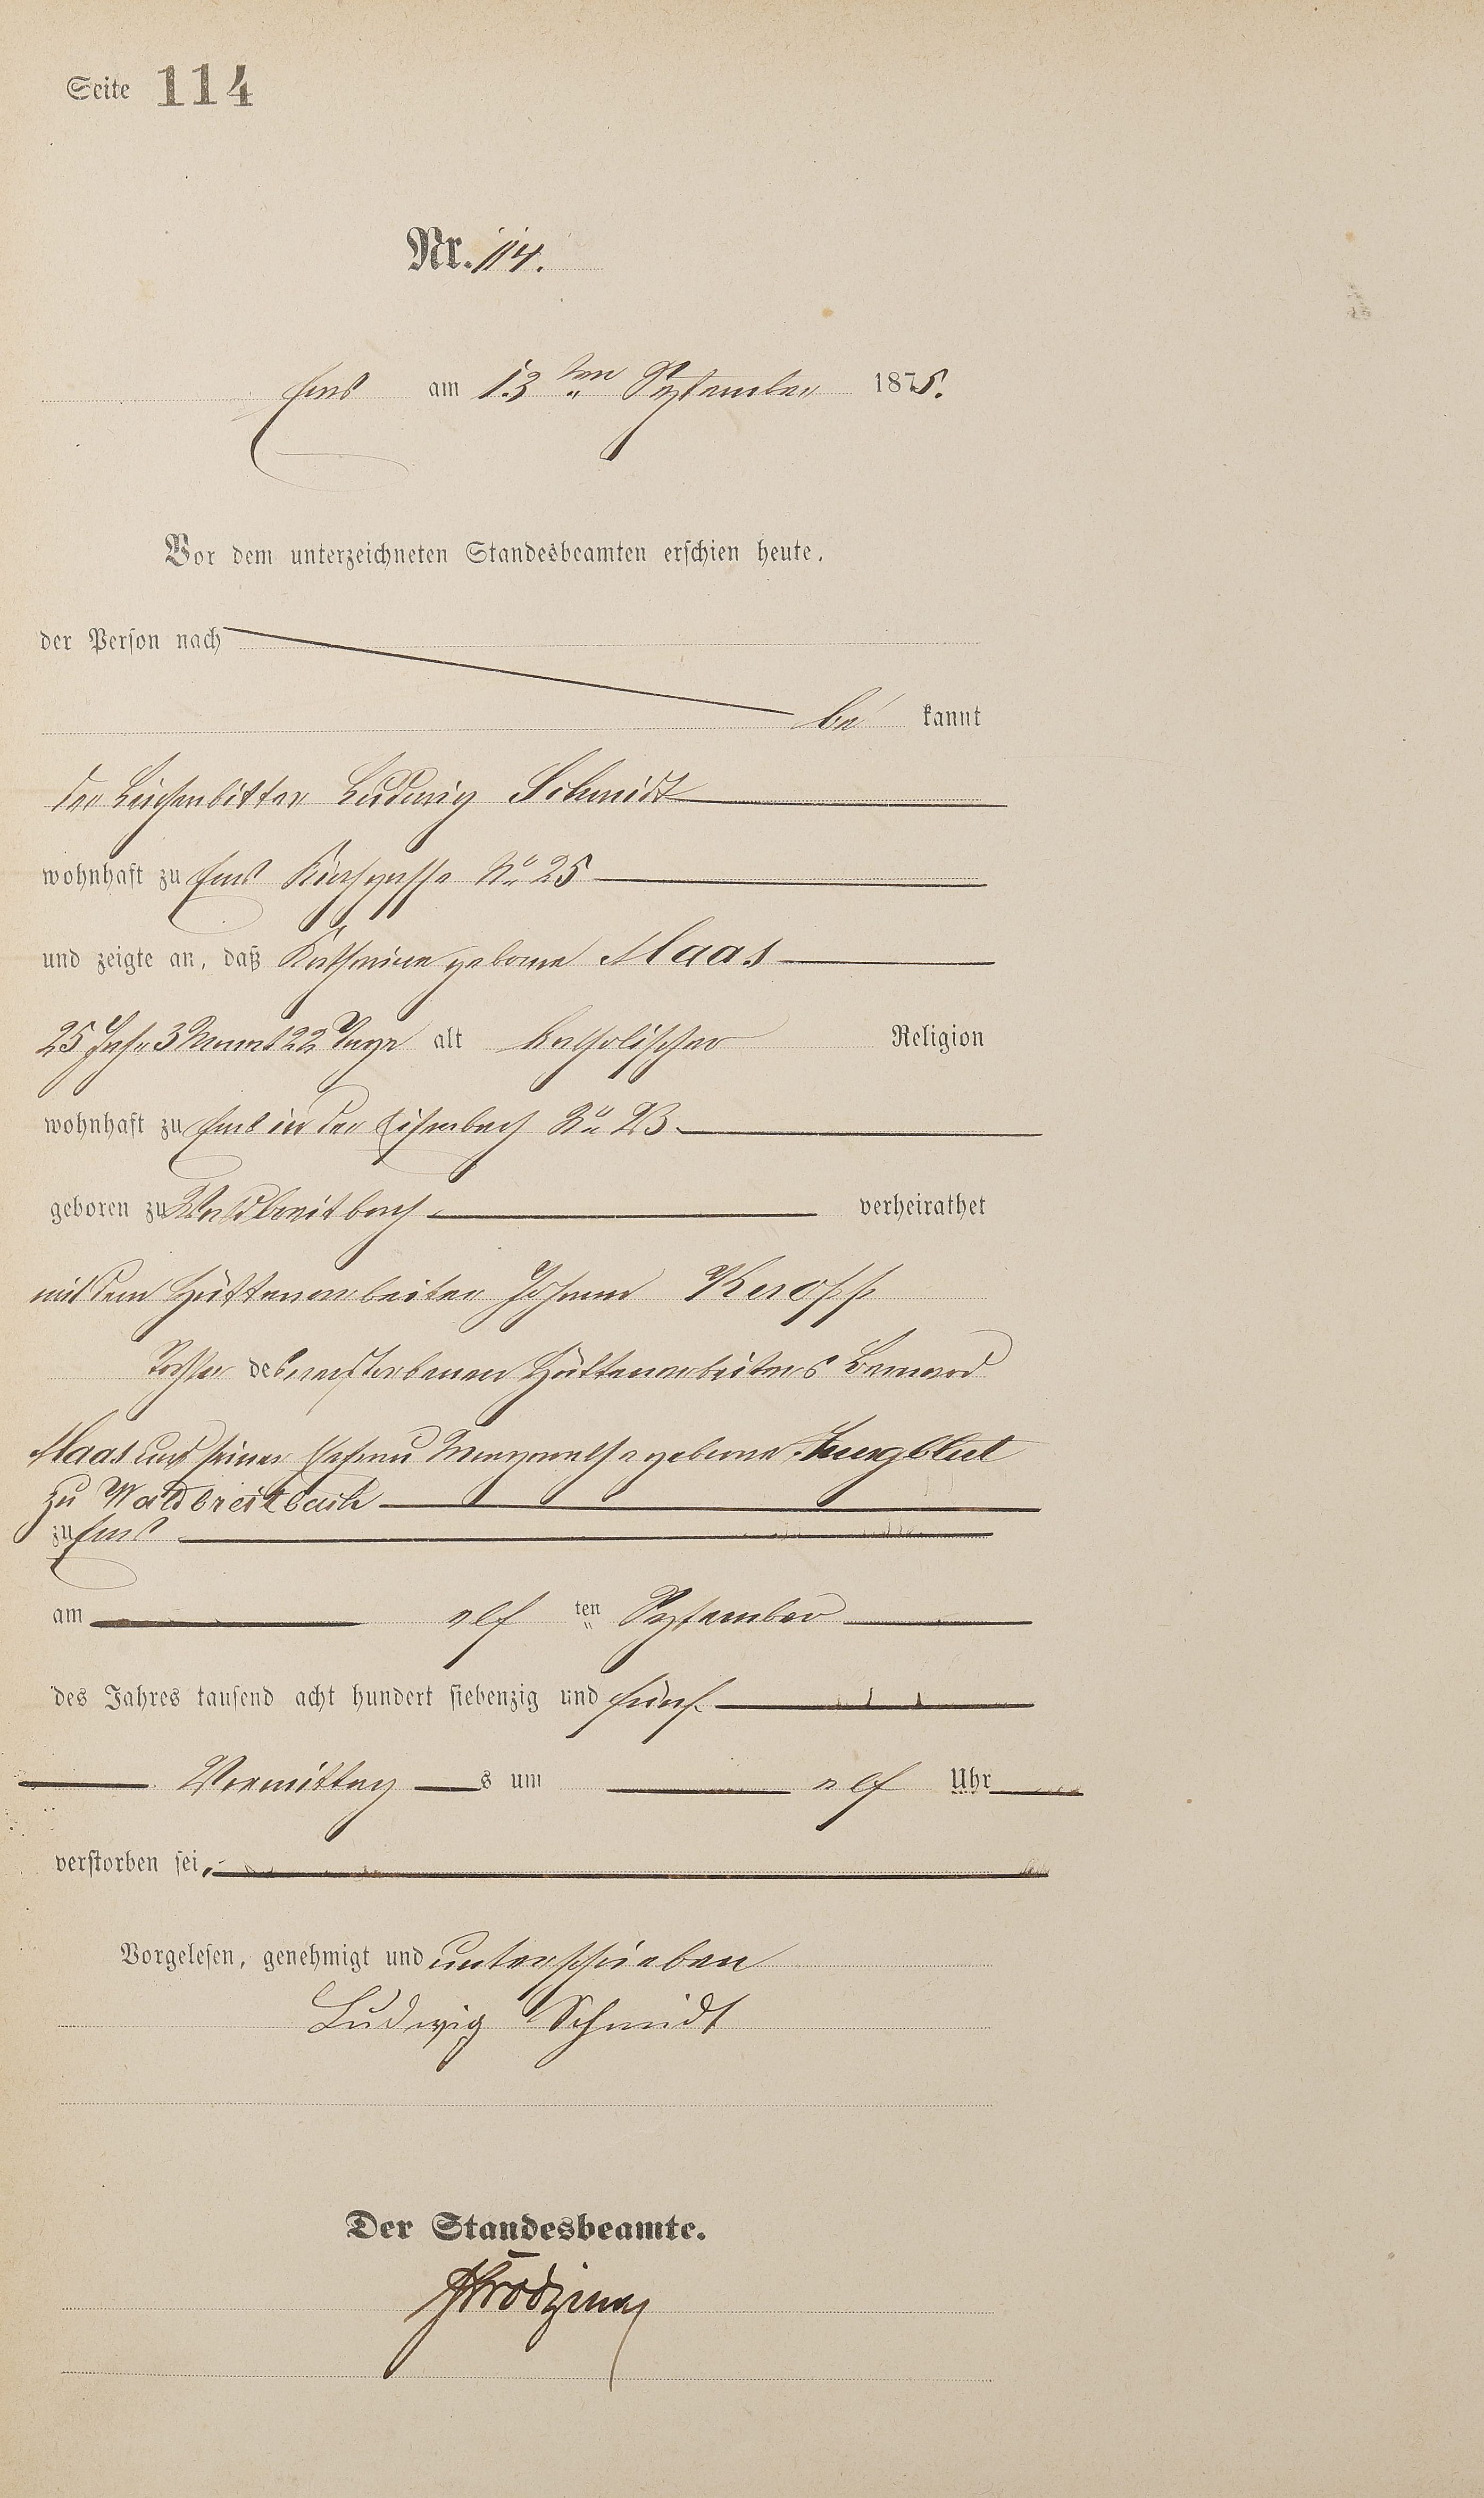 Seite 114
Nr. 114.
Ems am 13ten September 1875.
Vor dem unterzeichneten Standesbeamten erschien heute,
der Person nach
be kannt
der Leichenbitter Ludwig Schmidt
wohnhaft zu Ems Kirchgasse No 25
und zeigte an, daß Katharine geborne Maas
25 Jahr 3 Monat 22 Tage alt katholischer Religion
wohnhaft zu Ems in der Eisenbach No
geboren zu Waldbreitbach verheirathet
mit dem Hüttenarbeiter Johann Kropp
Tochter des verstorbenen Hüttenarbeiters Bernard
Maas und seiner Ehefrau geborne Jungblut
zu Waldbreitbach
zu Ems
am elf ten September
des Jahres tausend acht hundert siebenzig und fünf
Vormittag s um elf Uhr
verstorben sei,
Vorgelesen, genehmigt und unterschrieben
Ludwig Schmidt
Der Standesbeamte.